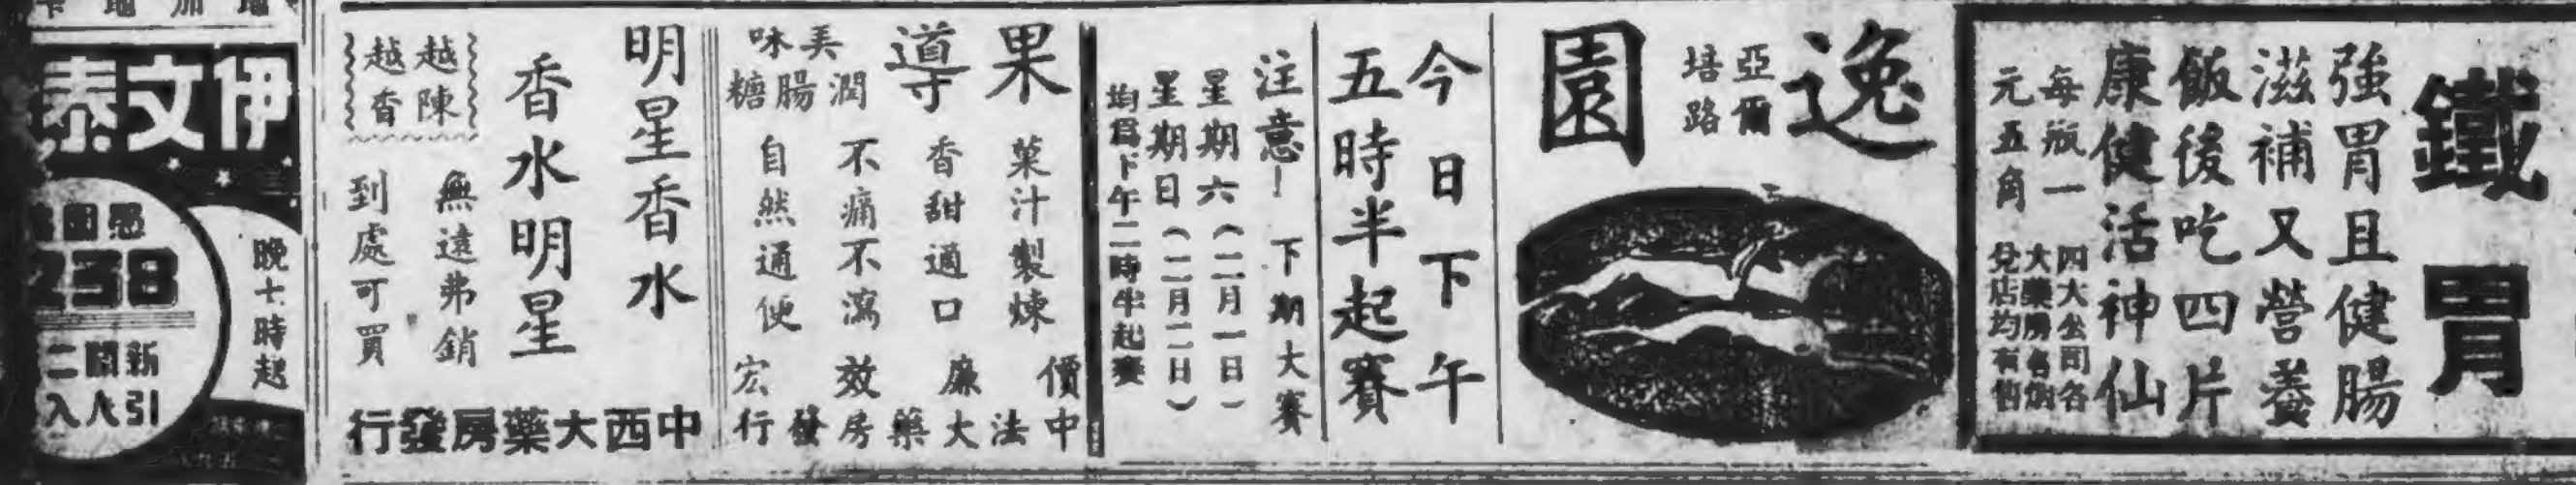 鐵胃
強胃且健腸
滋補又營養
飯後吃四片
康健活神仙
每瓶一
元五角
四大公司各
大藥房各烟
兌店均有售
逸園
亞爾
培路
今日下午
五時半起賽
注意！下期大賽
星期六（二月一日）
星期日（二月二日）
均爲下午二時半起賽
果導
美味
潤腸糖
菓汁製煉
香甜適口
不痛不瀉
自然通便
價廉效宏
中法大藥房發行
明星香水
香水明星
越陳
越香
無遠弗銷
到處可買
中西大藥房發行
伊文泰
晚十時起
238
新聞二
引人入